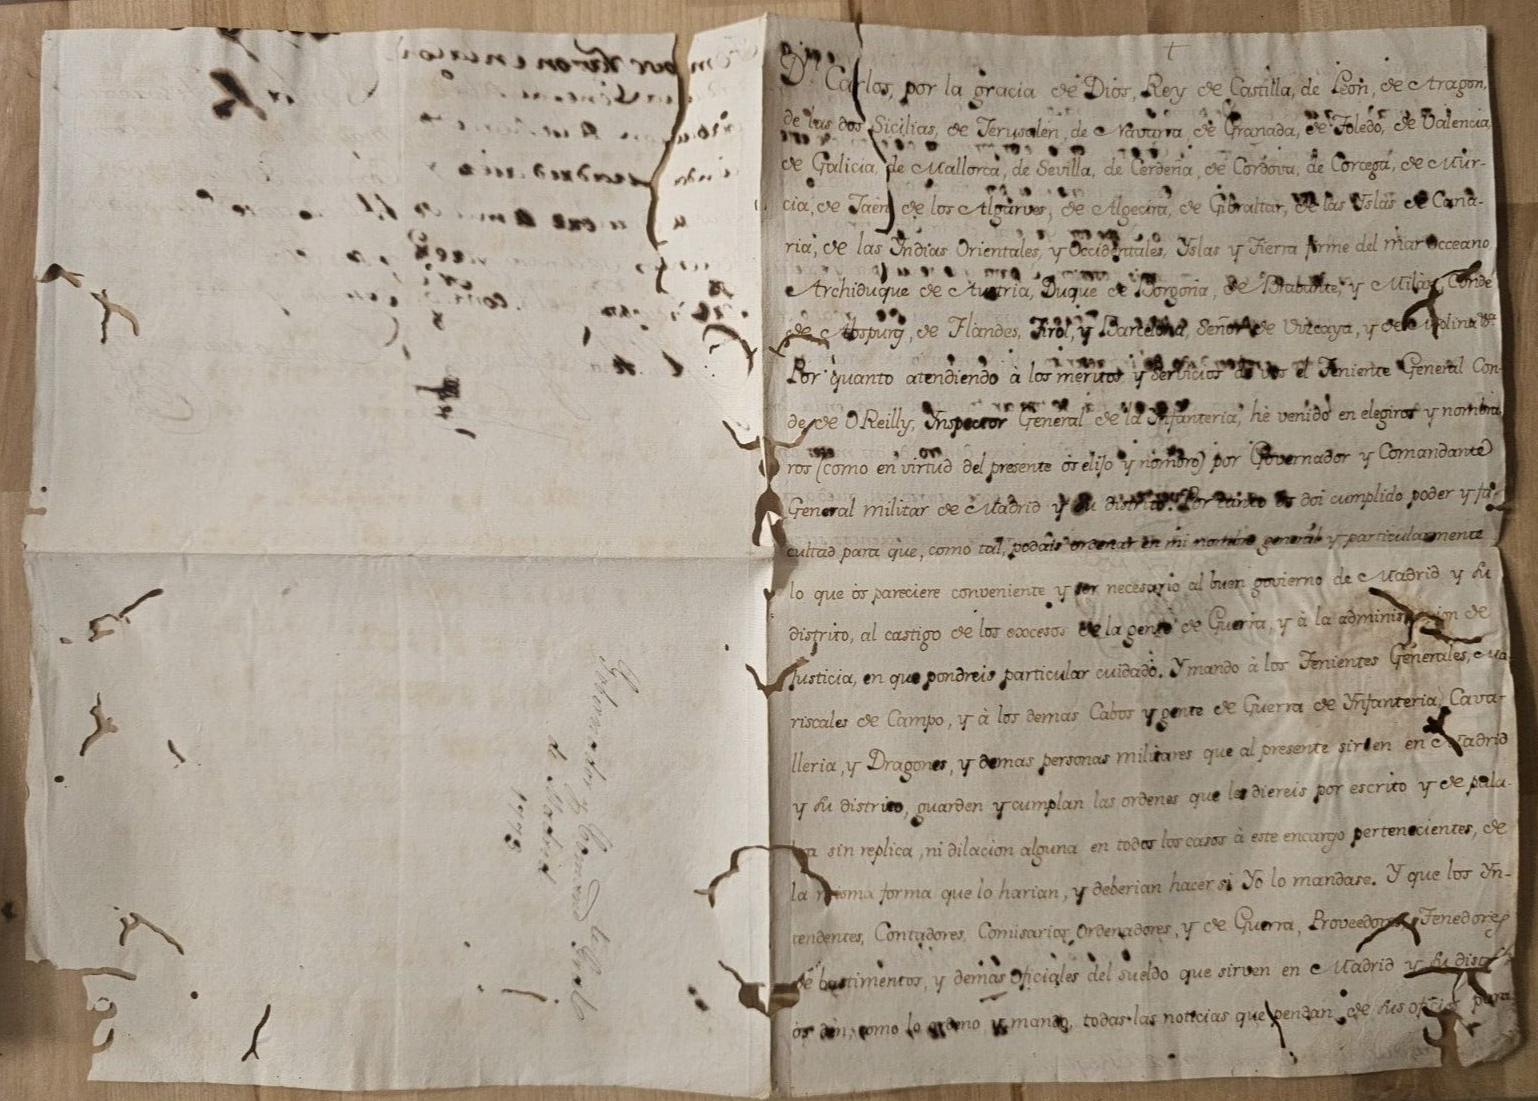 Dn. Carlos, por la gracia de Dios, Rey de Castilla, de Leon, de Aragon,
de las dos Sicilias, de Jerusalen, de Navarra, de Granada, de Toledo, de Valencia,
de Galicia, de Mallorca, de Sevilla, de Cerdeña, de Cordova, de Corcega, de Mur-
cia, de Jaen, de los Algarves, de Algecira, de Gibraltar, de las Yslas de Cana-
ria, de las Yndias Orientales, y Occidentales, Yslas y Tierra firme del mar occeano
Archiduque de Austria, Duque de Borgoña, de Brabante, y Milan, Conde
de Abspurg, de Flandes, Tirol, y Barcelona, Señor de Vizcaya, y de Molina &a.
Por quanto atendiendo à los meritos y servicios de vos el Teniente General Con-
de de OReilly, Ynspector General de la Ynfanteria, hè venido en elegiros y nombra
ros (como en virtud del presente òs elijo y nombro) por Governador y Comandante
General militar de Madrid y su distrito. Por tanto òs doi cumplido poder y fa-
cultad para que, como tal, podais ordenar en mi nombre general y particularmente
lo que òs pareciere conveniente y ser necesario al buen govierno de Madrid y su
distrito, al castigo de los excesos de la gente de Guerra, y à la administracion de
Justicia, en que pondreis particular cuidado. Y mando à los Tenientes Generales, Ma
riscales de Campo, y à los demas Cabos y gente de Guerra de Ynfanteria, Cava-
lleria, y Dragones, y demas personas militares que al presente sirven en Madrid
y su distrito, guarden y cumplan las ordenes que les diereis por escrito y de pala-
bra sin replica, ni dilacion alguna en todos los casos à este encargo pertenecientes, de
la misma forma que lo harian, y deberian hacer si Yo lo mandase. Y que los Yn-
tendentes, Contadores, Comisarios Ordenadores, y de Guerra, Proveedores, Tenedores
de bastimentos, y demàs oficiales del sueldo que sirven en Madrid y su distrito
òs dèn, como lo ordeno y mando, todas las noticias que pendan de sus oficios para
Governador y Comand.te Gral
de Madrid